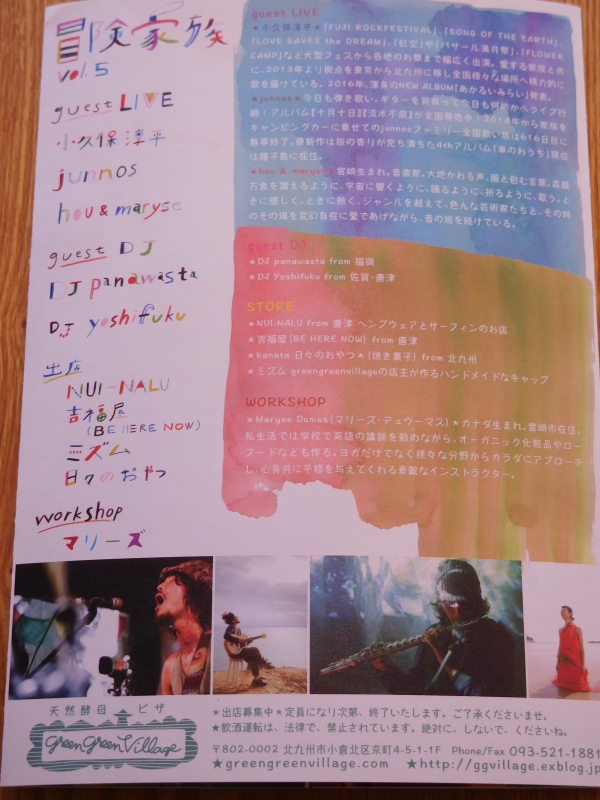 冒険家族
vol.5
guest LIVE
小久保淳平
junnos
hou & maryse
guest DJ
DJ panawasta
DJ yoshifuku
出店
NUI-NALU
吉福屋
(BE HERE NOW)
ミズム
日々のおやつ
workshop
マリーズ
guest LIVE
★小久保淳平★「FUJI ROCKFESTIVAL」、「SONG OF THE EARTH」、
「LOVE SAVES the DREAM」、「虹空」や「バサール満月祭」、「FLOWER
CAMP」など大型フェスから各地のお祭まで幅広く出演。愛する家族と共
に、2013年より拠点を東京から北九州に移し全国様々な場所へ精力的に
歌を届けている。2016年、渾身のNEW ALBUM「あかるいみらい」発表。
★junnos★今日も弾き歌い。ギターを背負って今日も何処かへライブ行
脚！アルバム『十月十日』『流水不腐』が全国発売中！2014年から家族を
キャンピングカーに乗せてのjunnosファミリー全国歌い旅は616日目に
無事終了。最新作は旅の香りが充ち満ちた4thアルバム『車のおうち』現在
は種子島に在住。
★hou & maryse★宮崎生まれ。音楽家。大地かおる声、風と包む言葉。森羅
万象を讃えるように、宇宙に響くように、踊るように、祈るように、歌う。と
きに優しく、ときに熱く、ジャンルを越えて、色んな芸術家たちと、その時
のその場を変幻自在に愛であげながら、音の旅を続けている。
guest DJ
★DJ panawasta from 福岡
★DJ Yoshifuku from 佐賀・唐津
STORE
★NUI-NALU from 唐津 ヘンプウェアとサーフィンのお店
★吉福屋(BE HERE NOW) from 唐津
★kanata 日々のおやつ★(焼き菓子) from 北九州
★ミズム greengreenvillageの店主が作るハンドメイドなキャップ
WORKSHOP
★Maryse Dumas(マリーズ・デュウーマス)★カナダ生まれ。宮崎市在住。
私生活では学校で英語の講師を勤めながら、オーガニック化粧品やロー
フードなども作る。ヨガだけでなく様々な分野からカラダにアプローチ
し、心身共に平穏を与えてくれる素敵なインストラクター。
天然酵母 ピザ
GreenGreenVillage
★出店募集中★定員になり次第、終了いたします。ご了承くださいませ。
★飲酒運転は、法律で、禁止されています。絶対に、しないで、くださいね。
〒802-0002 北九州市小倉北区京町4-5-1-1F Phone/Fax 093-521-1881
★greengreenvillage.com ★http://ggvillage.exblog.jp